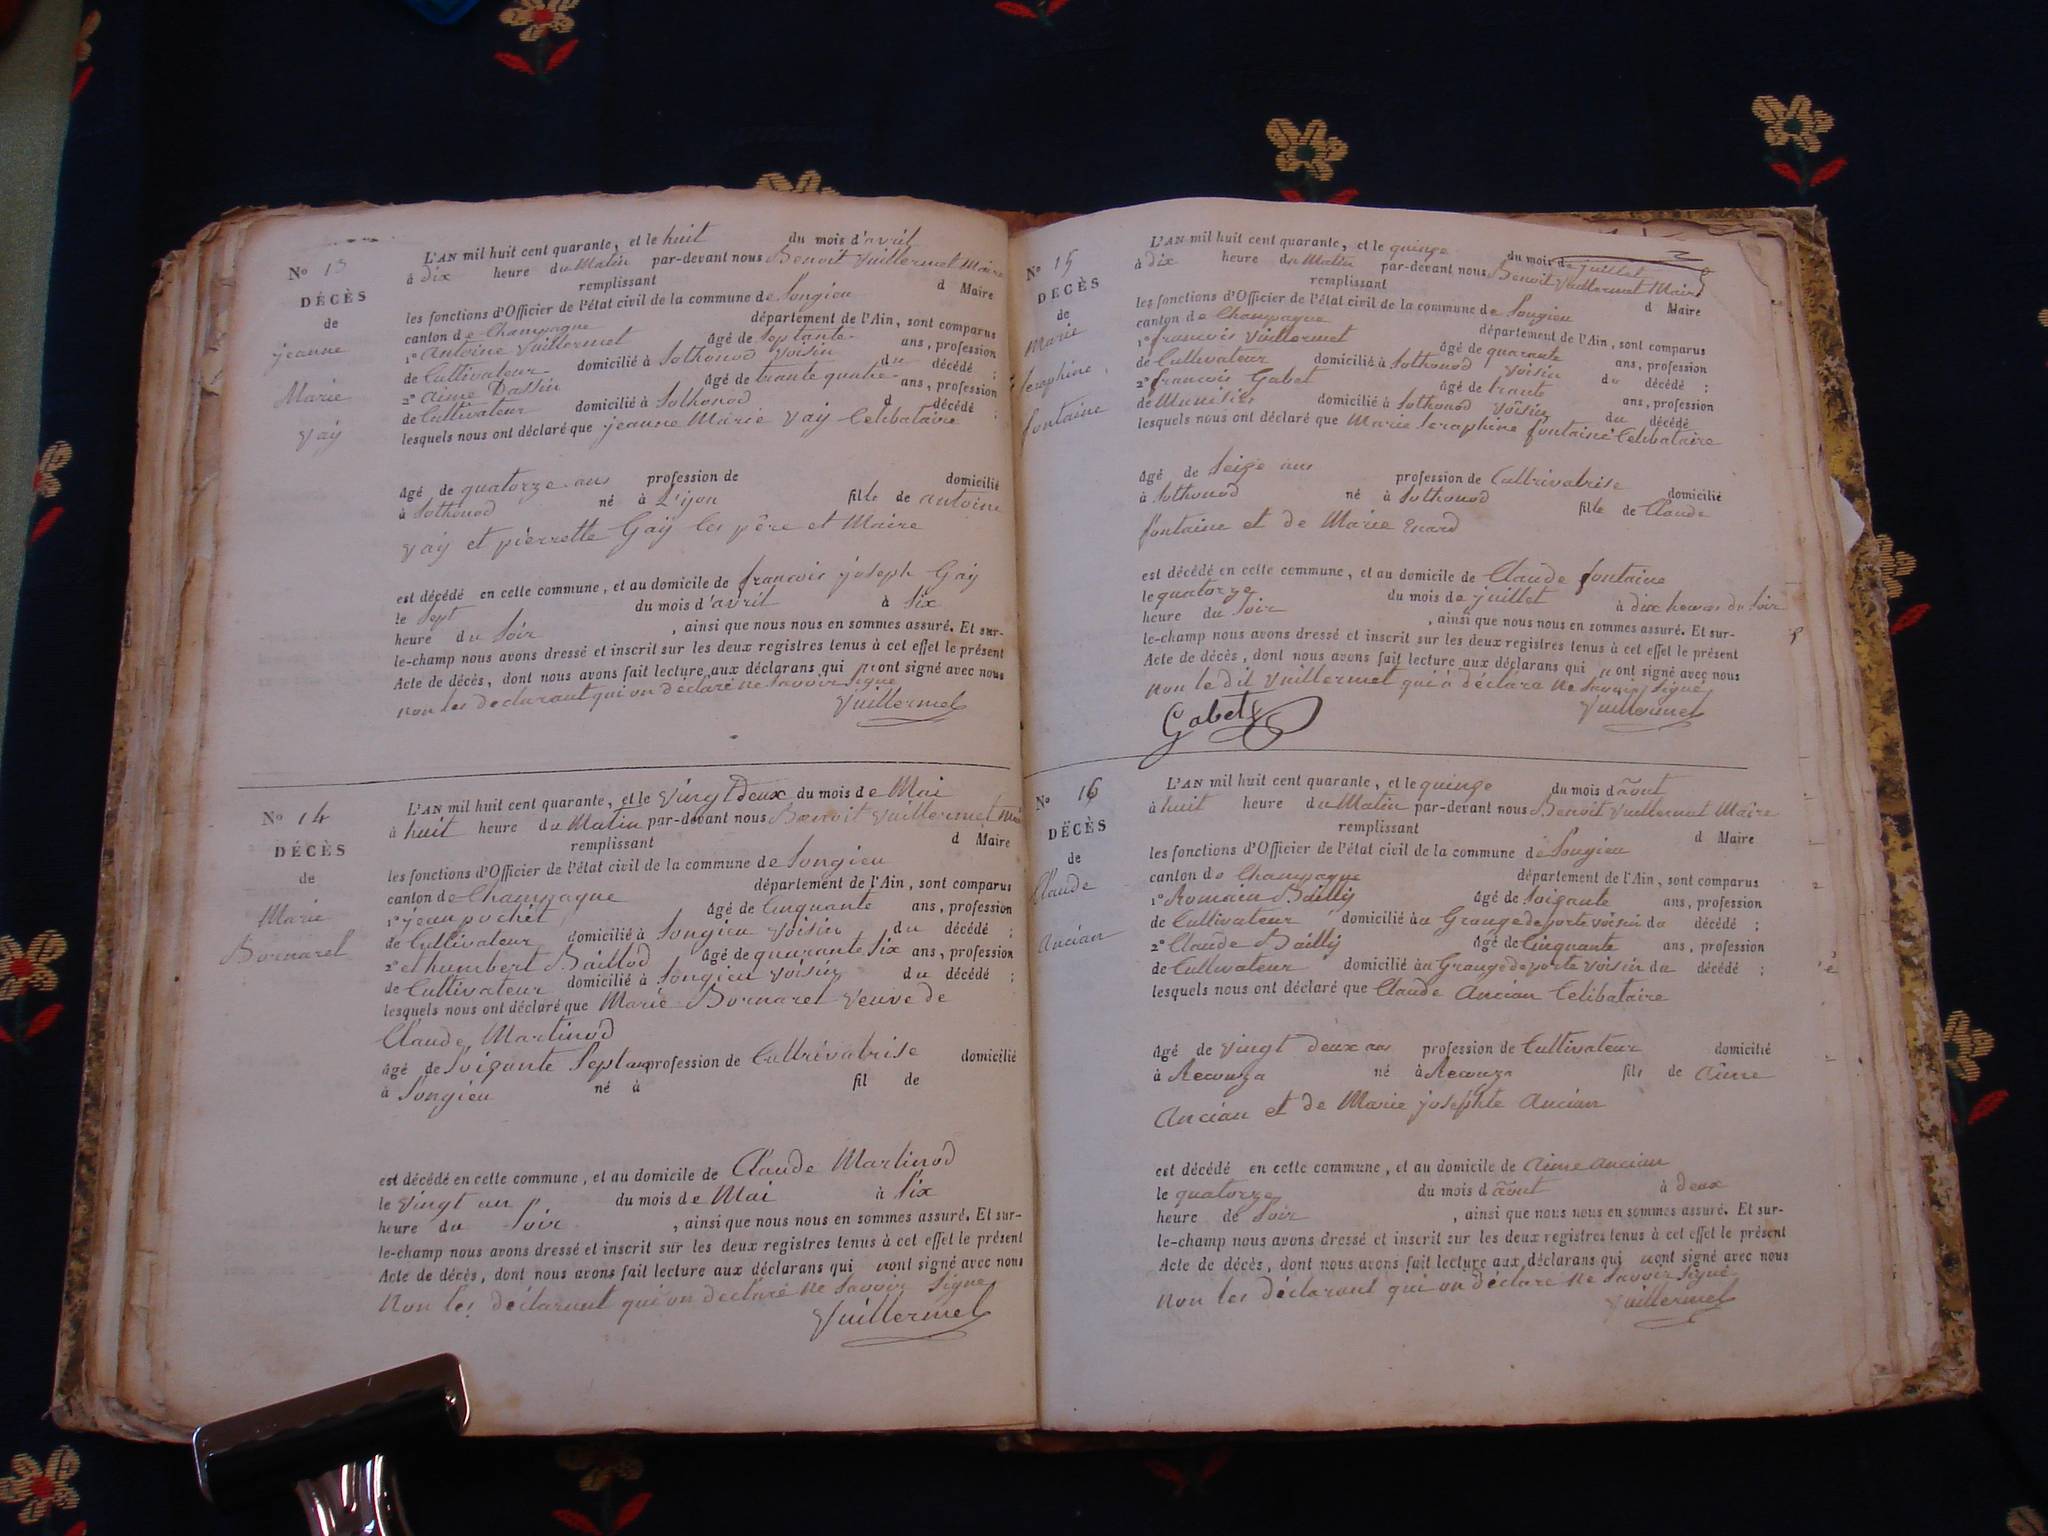 N° 13
DÉCÈS
de
jeanne
Marie
Vay
L'AN mil huit cent quarante, et le huit du mois d'avril
à dix heure du Matin par-devant nous Benoit Vuillermet Maire
remplissant d Maire
les fonctions d'Officier de l'état civil de la commune de Songieu
canton de Champagne département de l'Ain, sont comparus
1° Antoine Vuillermet âgé de Septante ans, profession
de Cultivateur domicilié à Sothonod voisin du décédé ;
2° Aimé Dassin âgé de trante quatre ans, profession
de Cultivateur domicilié à Sothonod d décédé ;
lesquels nous ont déclaré que jeanne Marie Vay Celibataire
âgé de quatorze ans profession de domicilié
à Sothonod né à Lÿon fille de antoine
Vay et pierrette Gaÿ les père et Maire
est décédé en cette commune, et au domicile de francois joseph Gaÿ
le Sept du mois d'avril à Six
heure du Soir , ainsi que nous nous en sommes assuré. Et sur-
le-champ nous avons dressé et inscrit sur les deux registres tenus à cet effet le présent
Acte de décès, dont nous avons fait lecture aux déclarans qui n ont signé avec nous
non les declarant qui on declaré ne Savoir Signe
Vuillermet
N° 14
DÉCÈS
de
Marie
Bornarel
L'AN mil huit cent quarante, et le Vingt deux du mois de Mai
à huit heure du Matin par-devant nous Benoit Vuillermet
remplissant d Maire
les fonctions d'Officier de l'état civil de la commune de Songieu
canton de Champagne département de l'Ain, sont comparus
1° jean pochet âgé de Cinquante ans, profession
de Cultivateur domicilié à Songieu voisin du décédé ;
2° et humbert Baillod âgé de quarante Six ans, profession
de Cultivateur domicilié à Songieu voisin du décédé ;
lesquels nous ont déclaré que Marie Bornarel veuve de
Claude Martinod
âgé de Soigante Sept ans profession de Cultrivatrise domicilié
à Songieu né à fil de
est décédé en cette commune, et au domicile de Claude Martinod
le Vingt un du mois de Mai à Six
heure du Soir , ainsi que nous nous en sommes assuré. Et sur-
le-champ nous avons dressé et inscrit sur les deux registres tenus à cet effet le présent
Acte de décès, dont nous avons fait lecture aux déclarans qui n ont signé avec nous
Non les déclarant qui on declaré ne Savoir Signe
Vuillermet
N° 15
DÉCÈS
de
Marie
Seraphine
fontaine
L'AN mil huit cent quarante, et le quinze du mois de juillet
à dix heure du Matin par-devant nous Benoit Vuillermet Maire
remplissant d Maire
les fonctions d'Officier de l'état civil de la commune de Songieu
canton de Champagne département de l'Ain, sont comparus
1° francois Vuillermet âgé de quarante ans, profession
de Cultivateur domicilié à Sothonod voisin du décédé ;
2° francois Gabet âgé de trante ans, profession
de domicilié à Sothonod voisin du décédé
lesquels nous ont déclaré que Marie Seraphine fontaine Celibataire
âgé de Seize ans profession de Cultrivatrise domicilié
à Sothonod né à Sothonod fille de Claude
fontaine et de Marie
est décédé en cette commune, et au domicile de Claude fontaine
le quatorze du mois de juillet à dix heures du Soir
heure du Soir , ainsi que nous nous en sommes assuré. Et sur-
le-champ nous avons dressé et inscrit sur les deux registres tenus à cet effet le présent
Acte de décès, dont nous avons fait lecture aux déclarans qui n ont signé avec nous
non le dit Vuillermet qui a déclara ne Savoir Signé
Vuillermet
Gabet
N° 16
DÉCÈS
de
Claude
Ancian
L'AN mil huit cent quarante, et le quinze du mois d'août
à huit heure du Matin par-devant nous Benoit Vuillermet Maire
remplissant d Maire
les fonctions d'Officier de l'état civil de la commune de Songieu
canton de Champagne département de l'Ain, sont comparus
1° Romain Bailly âgé de Soigante ans, profession
de Cultivateur domicilié à a Grange de porte voisin du décédé ;
2° Claude Bailly âgé de Cinquante ans, profession
de Cultivateur domicilié à a Grange de porte voisin du décédé ;
lesquels nous ont déclaré que Claude Ancian Celibataire
âgé de Vingt deux ans profession de Cultivateur domicilié
à né à fils de Aime
Ancian et de Marie josephte Ancian
est décédé en cette commune, et au domicile de Aime Ancian
le quatorze du mois d août à deux
heure de Soir , ainsi que nous nous en sommes assuré. Et sur-
le-champ nous avons dressé et inscrit sur les deux registres tenus à cet effet le présent
Acte de décès, dont nous avons fait lecture aux déclarans qui n ont signé avec nous
Non les déclarant qui on déclare ne Savoir Signé
Vuillermet